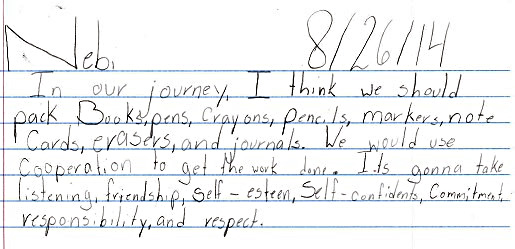 Neb. 8/26/14
In our journey, I think we should
pack Books, pens, Crayons, pencils, markers, note
Cards, erasers, and journals. We would use
Cooperation to get the work done. It's gonna take
listening, friendship, self-esteen, Self-confidents, Commitment,
responsibility, and respect.